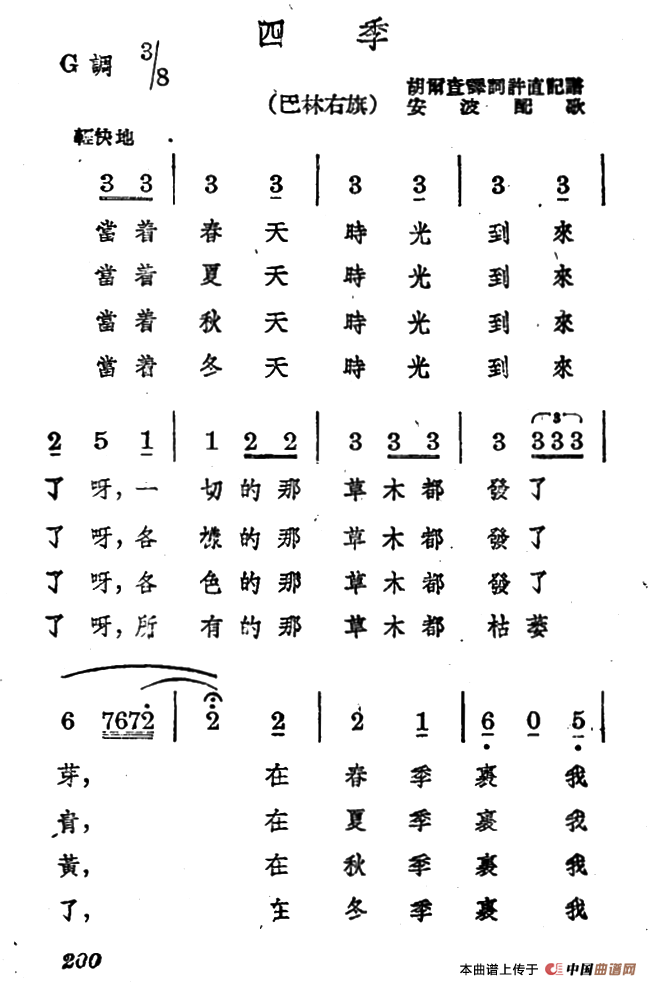 四季
G調 3/8
胡爾查譯詞 許直記譜
(巴林右旗) 安波配歌
輕快地
3 3 | 3 3 | 3 3 | 3 3 |
當着春天時光到來
當着夏天時光到來
當着秋天時光到來
當着冬天時光到來
2 5 1 | 1 2 2 | 3 3 3 | 3 333 |
了呀,一切的那草木都發了
了呀,各樣的那草木都發了
了呀,各色的那草木都發了
了呀,所有的那草木都枯萎
6 7672 | 2 2 | 2 1 | 6 0 5 |
芽, 在春季裏我
青, 在夏季裏我
黃, 在秋季裏我
了, 在冬季裏我
200
本曲谱上传于 中国曲谱网